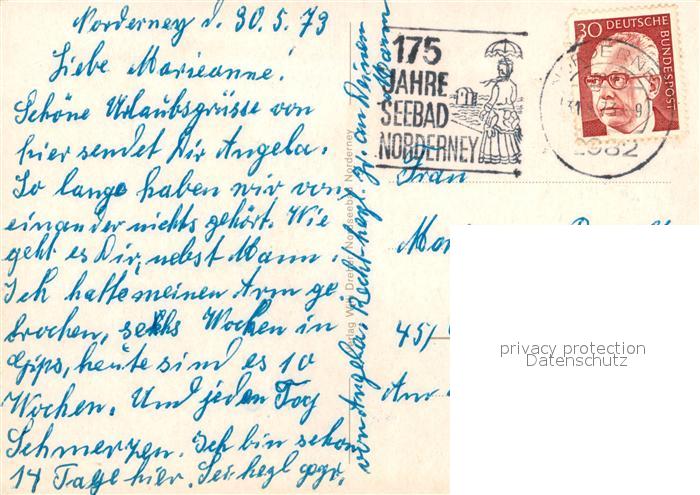 Norderney d. 30.5.73
Liebe Marieanne!
Schöne Urlaubsgrüsse von
hier sendet Dir Angela.
So lange haben wir von
einander nichts gehört. Wie
geht es Dir, nebst Mann.
Ich hatte meinen Arm ge-
brochen, sechs Wochen in
Gips, heute sind es 10
Wochen. Und jeden Tag
Schmerzen. Ich bin schon
14 Tage hier. Sei hezl gegr.
von Angela. Recht hezl. Gr. an Deinen Mann
Verlag Nordseebad Norderney
175
JAHRE
SEEBAD
NORDERNEY
30 DEUTSCHE BUNDESPOST
2982
Frau
45/
privacy protection
Datenschutz